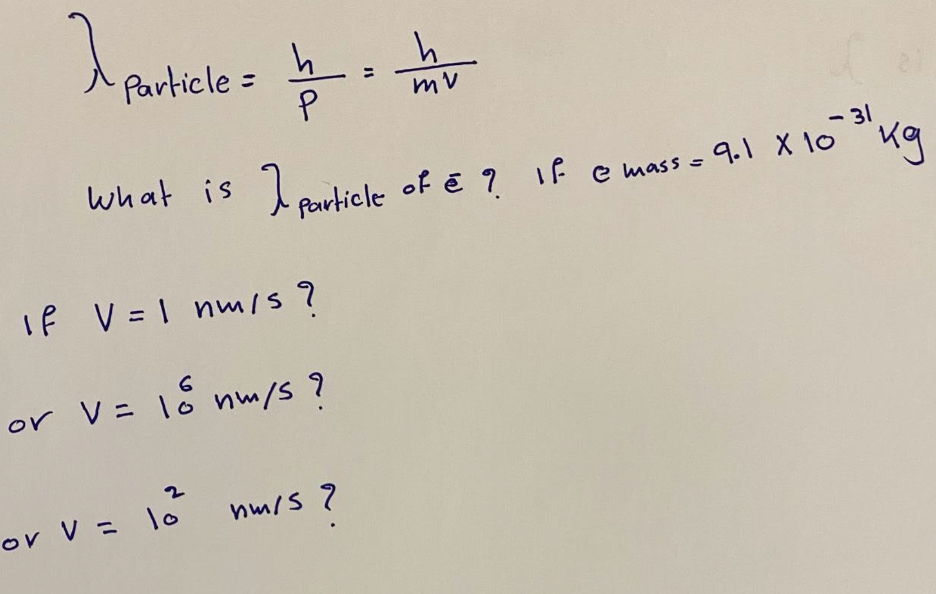 λ particle = h/p = h/mv
What is λ particle of ē ? If e mass = 9.1 X 10⁻³¹ kg
If V = 1 nm/s ?
or V = 10⁶ nm/s ?
or V = 10² nm/s ?